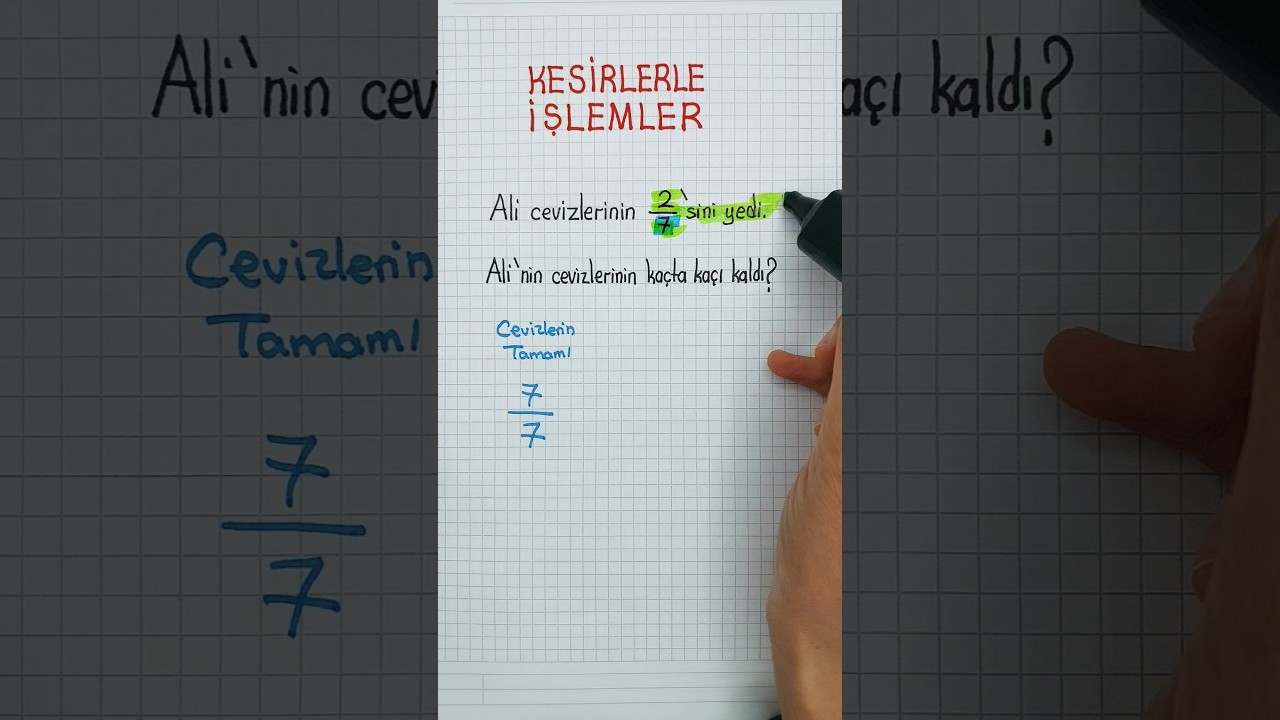 KESİRLERLE
İŞLEMLER
Ali cevizlerinin 2/7`sini yedi.
Ali`nin cevizlerinin kaçta kaçı kaldı?
Cevizlerin
Tamamı
7
7